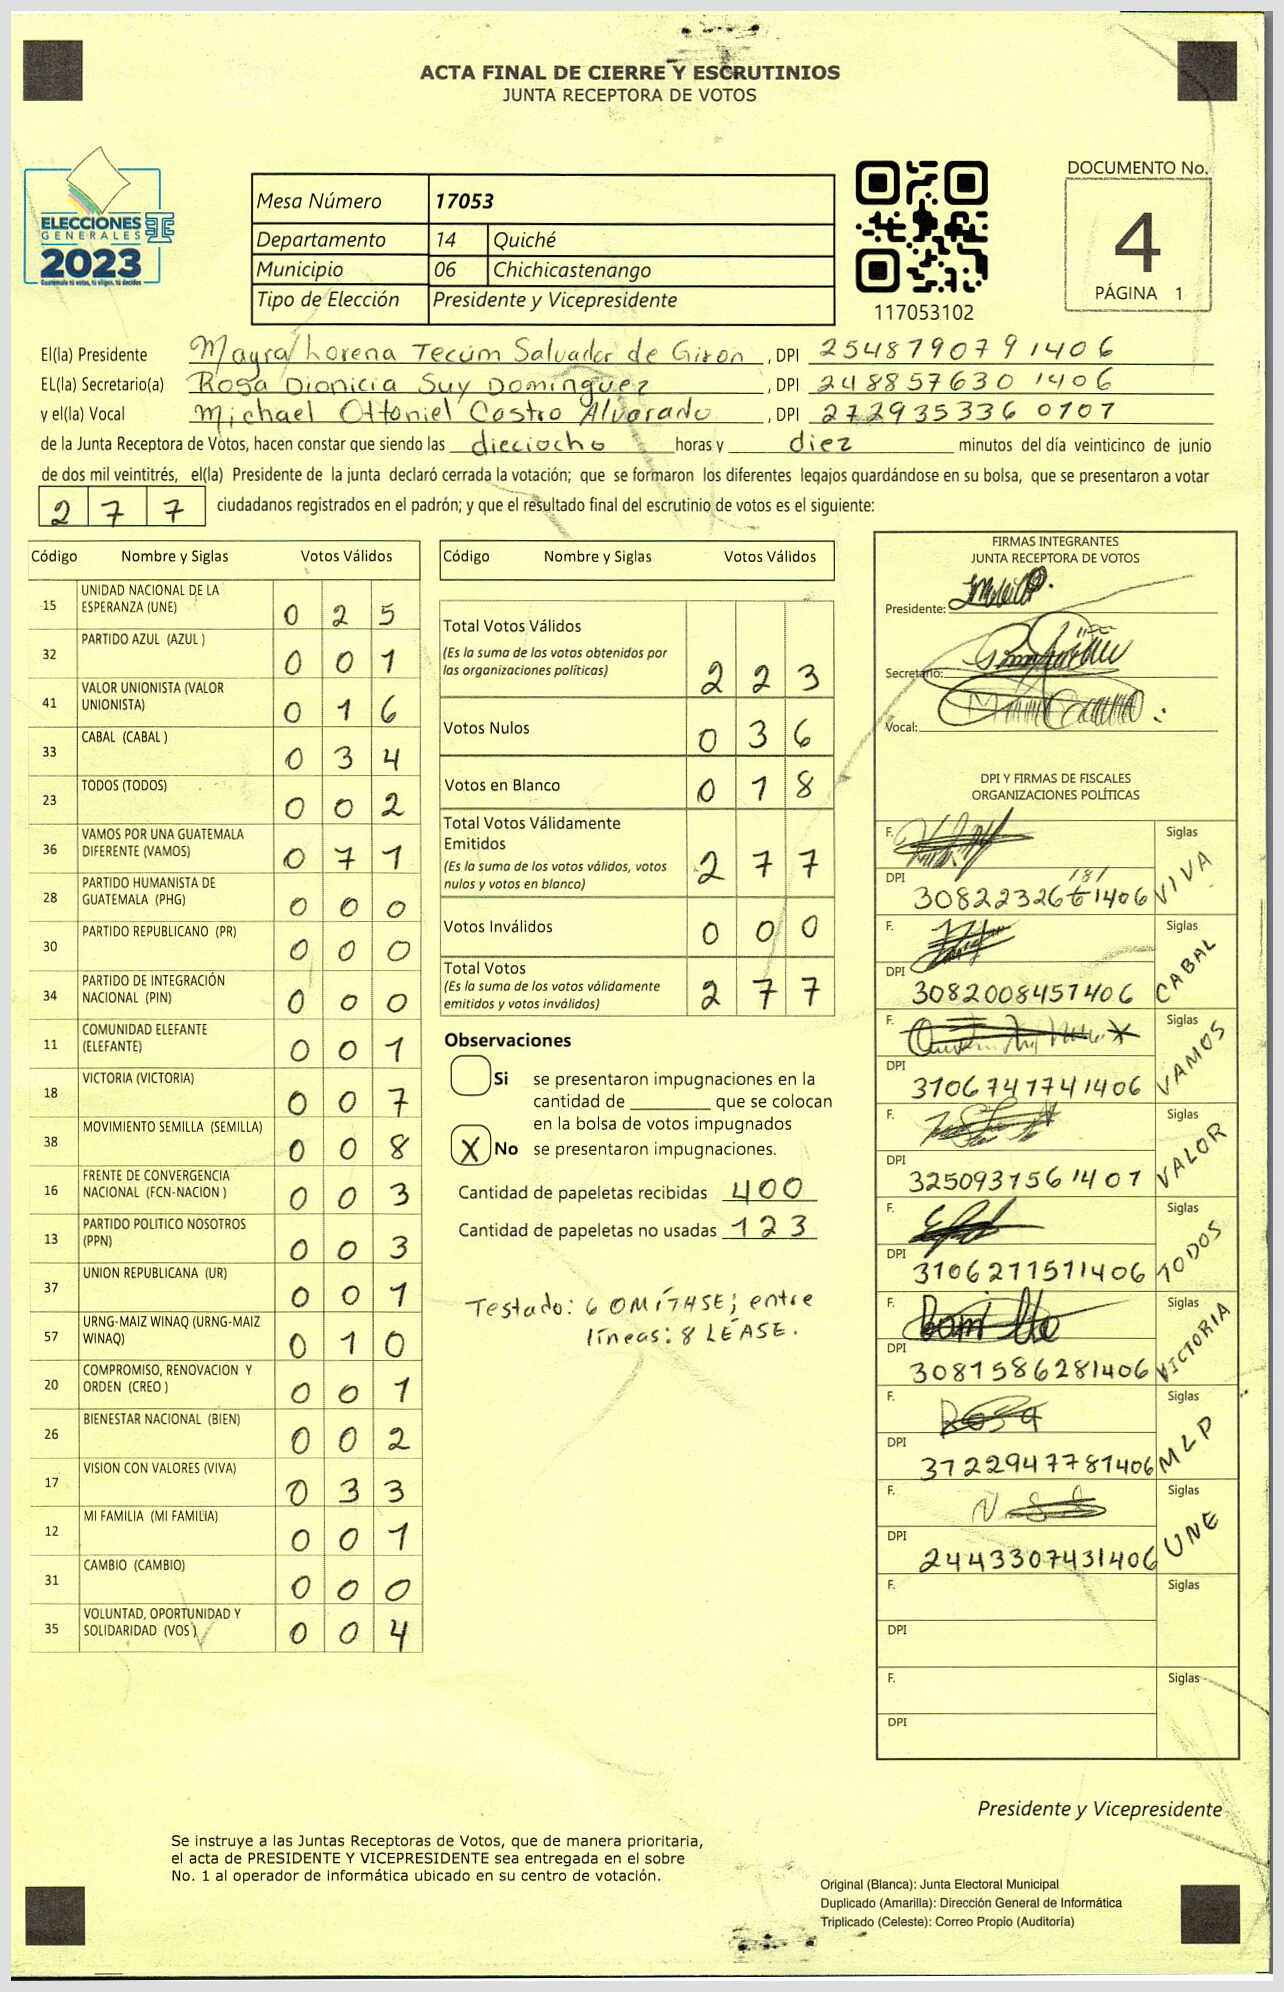 ACTA FINAL DE CIERRE Y ESCRUTINIOS
JUNTA RECEPTORA DE VOTOS
ELECCIONES
GENERALES
2023
Guatemala tú votas, tú eliges, tú decides
Mesa Número 17053
Departamento 14 Quiché
Municipio 06 Chichicastenango
Tipo de Elección Presidente y Vicepresidente
117053102
DOCUMENTO No.
4
PÁGINA 1
El(la) Presidente Mayra Lorena Tecúm Salvador de Girón , DPI 2548790791406
EL(la) Secretario(a) Rosa Dionicia Suy Domínguez , DPI 248857630 1406
y el(la) Vocal Michael Ottoniel Castro Alvarado , DPI 272935336 0101
de la Junta Receptora de Votos, hacen constar que siendo las dieciocho horas y diez minutos del día veinticinco de junio
de dos mil veintitrés, el(la) Presidente de la junta declaró cerrada la votación; que se formaron los diferentes legajos quardándose en su bolsa, que se presentaron a votar
277 ciudadanos registrados en el padrón; y que el resultado final del escrutinio de votos es el siguiente:
Código Nombre y Siglas Votos Válidos
15 UNIDAD NACIONAL DE LA
ESPERANZA (UNE) 0 2 5
32 PARTIDO AZUL (AZUL ) 0 0 1
41 VALOR UNIONISTA (VALOR
UNIONISTA) 0 1 6
33 CABAL (CABAL ) 0 3 4
23 TODOS (TODOS) 0 0 2
36 VAMOS POR UNA GUATEMALA
DIFERENTE (VAMOS) 0 7 1
28 PARTIDO HUMANISTA DE
GUATEMALA (PHG) 0 0 0
30 PARTIDO REPUBLICANO (PR) 0 0 0
34 PARTIDO DE INTEGRACIÓN
NACIONAL (PIN) 0 0 0
11 COMUNIDAD ELEFANTE
(ELEFANTE) 0 0 1
18 VICTORIA (VICTORIA) 0 0 7
38 MOVIMIENTO SEMILLA (SEMILLA) 0 0 8
16 FRENTE DE CONVERGENCIA
NACIONAL (FCN-NACION ) 0 0 3
13 PARTIDO POLITICO NOSOTROS
(PPN) 0 0 3
37 UNION REPUBLICANA (UR) 0 0 1
57 URNG-MAIZ WINAQ (URNG-MAIZ
WINAQ) 0 1 0
20 COMPROMISO, RENOVACION Y
ORDEN (CREO ) 0 0 1
26 BIENESTAR NACIONAL (BIEN) 0 0 2
17 VISION CON VALORES (VIVA) 0 3 3
12 MI FAMILIA (MI FAMILIA) 0 0 1
31 CAMBIO (CAMBIO) 0 0 0
35 VOLUNTAD, OPORTUNIDAD Y
SOLIDARIDAD (VOS ) 0 0 4
Código Nombre y Siglas Votos Válidos
Total Votos Válidos
(Es la suma de los votos obtenidos por
las organizaciones políticas) 2 2 3
Votos Nulos 0 3 6
Votos en Blanco 0 1 8
Total Votos Válidamente
Emitidos
(Es la suma de los votos válidos, votos
nulos y votos en blanco) 2 7 7
Votos Inválidos 0 0 0
Total Votos
(Es la suma de los votos válidamente
emitidos y votos inválidos) 2 7 7
Observaciones
Si se presentaron impugnaciones en la
cantidad de ________ que se colocan
en la bolsa de votos impugnados
X No se presentaron impugnaciones.
Cantidad de papeletas recibidas 400
Cantidad de papeletas no usadas 123
Testado: 6 OMÍTASE; entre
líneas: 8 LÉASE.
FIRMAS INTEGRANTES
JUNTA RECEPTORA DE VOTOS
Presidente:
Secretario:
Vocal:
DPI Y FIRMAS DE FISCALES
ORGANIZACIONES POLÍTICAS
F. Siglas VIVA
DPI
F. Siglas CABAL
DPI 3082008451406
F. Siglas VAMOS
DPI 3106741741406
F. Siglas VALOR
DPI 3250931561401
F. Siglas TODOS
DPI 3106211511406
F. Siglas VICTORIA
DPI 3081586281406
F. Siglas MLP
DPI 3122947781406
F. Siglas UNE
DPI 2443307431406
F. Siglas
DPI
F. Siglas
DPI
Presidente y Vicepresidente
Se instruye a las Juntas Receptoras de Votos, que de manera prioritaria,
el acta de PRESIDENTE Y VICEPRESIDENTE sea entregada en el sobre
No. 1 al operador de informática ubicado en su centro de votación.
Original (Blanca): Junta Electoral Municipal
Duplicado (Amarilla): Dirección General de Informática
Triplicado (Celeste): Correo Propio (Auditoría)